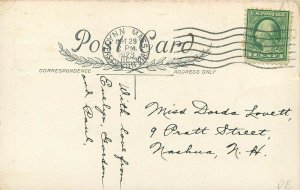 LYNN MASS.
29
PM
Post Card
CORRESPONDENCE
ADDRESS ONLY
With love from
Evelyn, Gordon
and Paul.
Miss Dorda Lovett,
9 Pratt Street,
Nashua, N. H.